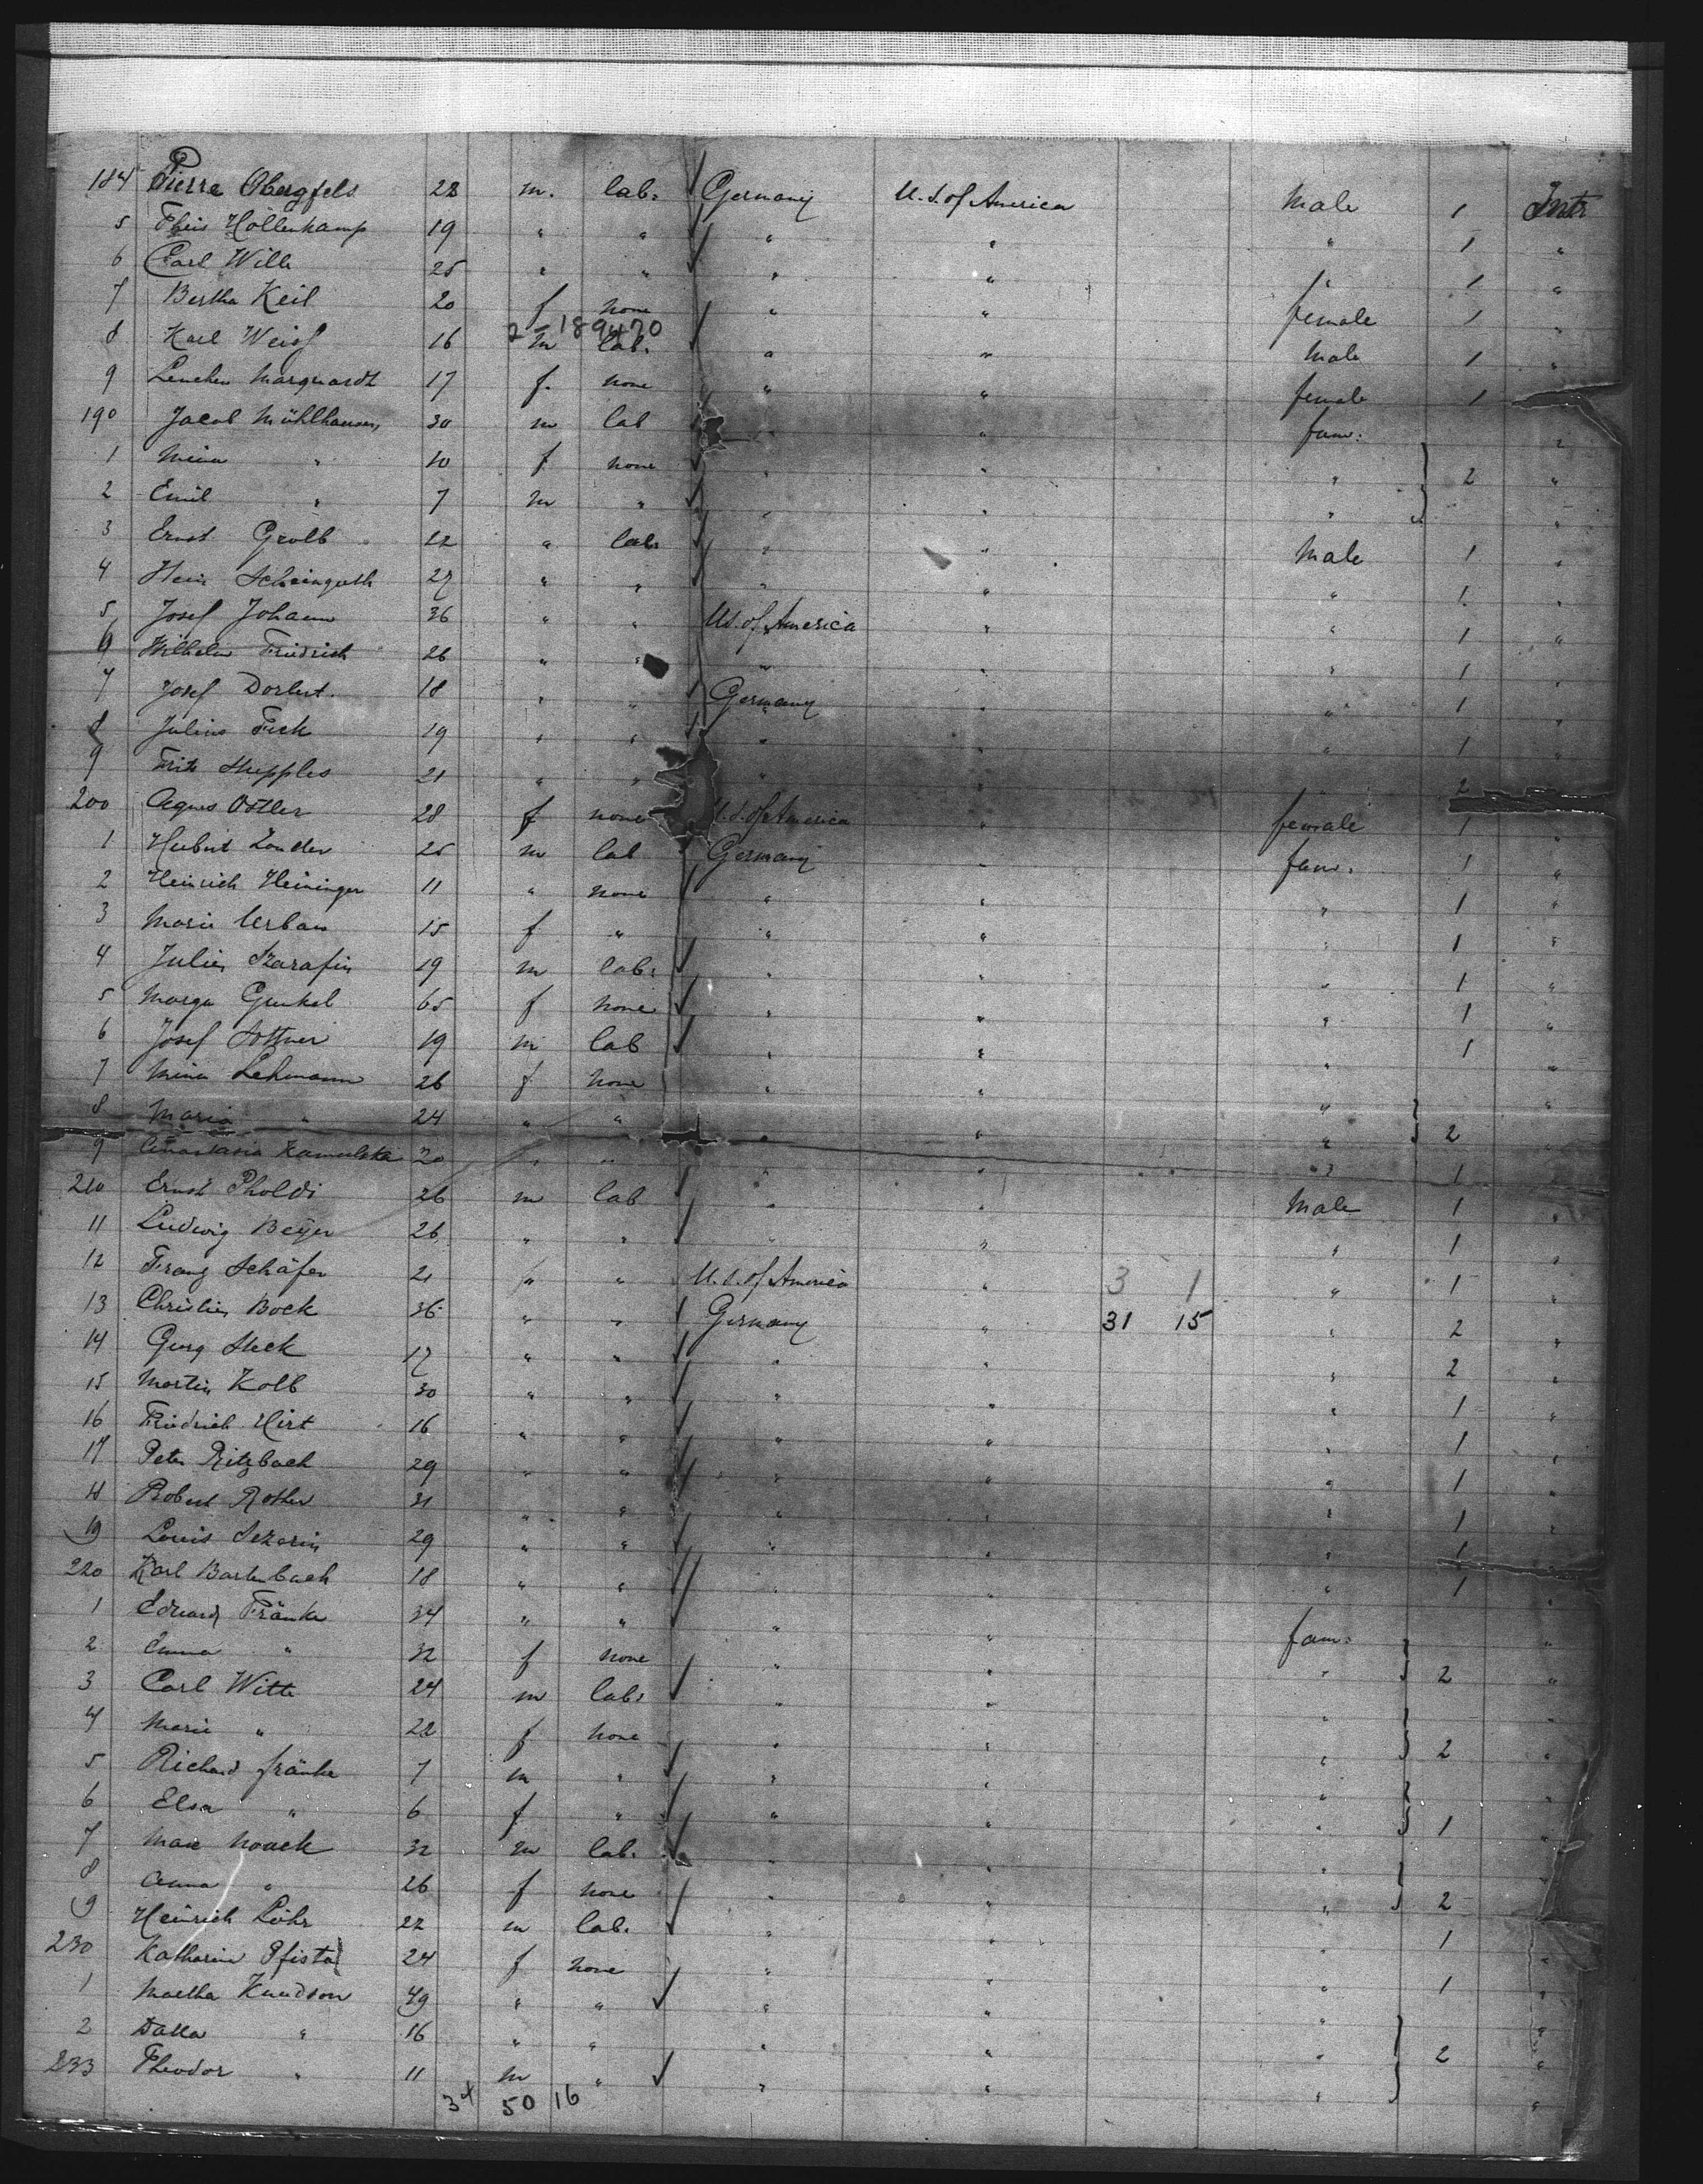 184 Pierre Obergfels 22 m. lab. Germany U.S. of America Male 1 Intr
5 Theis Hollenkamp 19 " " " " " 1 "
6 Carl Wille 25 " " " " " 1 "
7 Bertha Keil 20 f none " " female 1 "
2-189470
8 Karl Weiss 16 m lab. " " Male 1 "
9 Lenchen Marquardt 17 f. none " " female 1
190 Jacob Mühlhausen 30 m lab " " fam: "
1 Mina " 10 f none " " " 2 "
2 Emil " 7 m " " " " "
3 Ernst Grolb 22 " lab. " " Male 1 "
4 Hein Scheinguth 27 " " " " " 1 "
5 Josef Johann 36 " " U.S. of America " " 1 "
6 Wilhelm Friedrich 26 " " " " " 1 "
7 Josef Dorbert. 18 " " Germany " " 1 "
8 Julius Fick 19 " " " " " 1 "
9 Fritz Stepples 21 " " " " " 2
200 Agnes Ostler 28 f none U.S. of America " female 1 "
1 Hubert Zander 25 m lab Germany " fam. 1 "
2 Heinrich Heininger 11 " none " " " 1 "
3 Marie Urban 15 f " " " " 1 "
4 Julien Szarafin 19 m lab. " " " 1 "
5 Marga Gunkel 65 f none " " " 1 "
6 Josef Sottner 19 m lab " " " 1 "
7 Mina Lehmann 26 f none " " " "
8 Maria " 24 " " " " " 2 "
9 Anastasia Kamulska 20 " " " " " 1 "
210 Ernst Pholdi 26 m lab " " Male 1 "
11 Ludwig Beyer 26 " " " " " 1 "
12 Franz Schäfer 21 " " U.S. of America " 3 1 " 1 "
13 Christian Bock 36 " " Germany " 31 15 " 2 "
14 Georg Steck 17 " " " " " 2 "
15 Martin Kolb 30 " " " " " 1 "
16 Friedrich Hirt 16 " " " " " 1 "
17 Peter Ritzbach 29 " " " " " 1 "
18 Robert Rother 31 " " " " " 1 "
19 Louis Sezarin 29 " " " " " 1 "
220 Karl Bartenbach 18 " " " " " 1 "
1 Eduard Fränke 34 " " " " fam: "
2 Emma " 32 f none " " " 2 "
3 Carl Witte 24 m lab. " " " "
4 Marie " 22 f none " " " 2 "
5 Richard Fränke 7 m " " " " "
6 Elsa " 6 f " " " " 1 "
7 Max Noack 32 m lab. " " " "
8 Anna " 26 f none " " " 2 "
9 Heinrich Löhr 22 m lab. " " " 1 "
230 Katharina Pfister 24 f none " " " 1 "
1 Martha Knudson 49 " " " " " "
2 Dalla " 16 " " " " " 2 "
233 Theodor " 11 m " " " " "
34 50 16